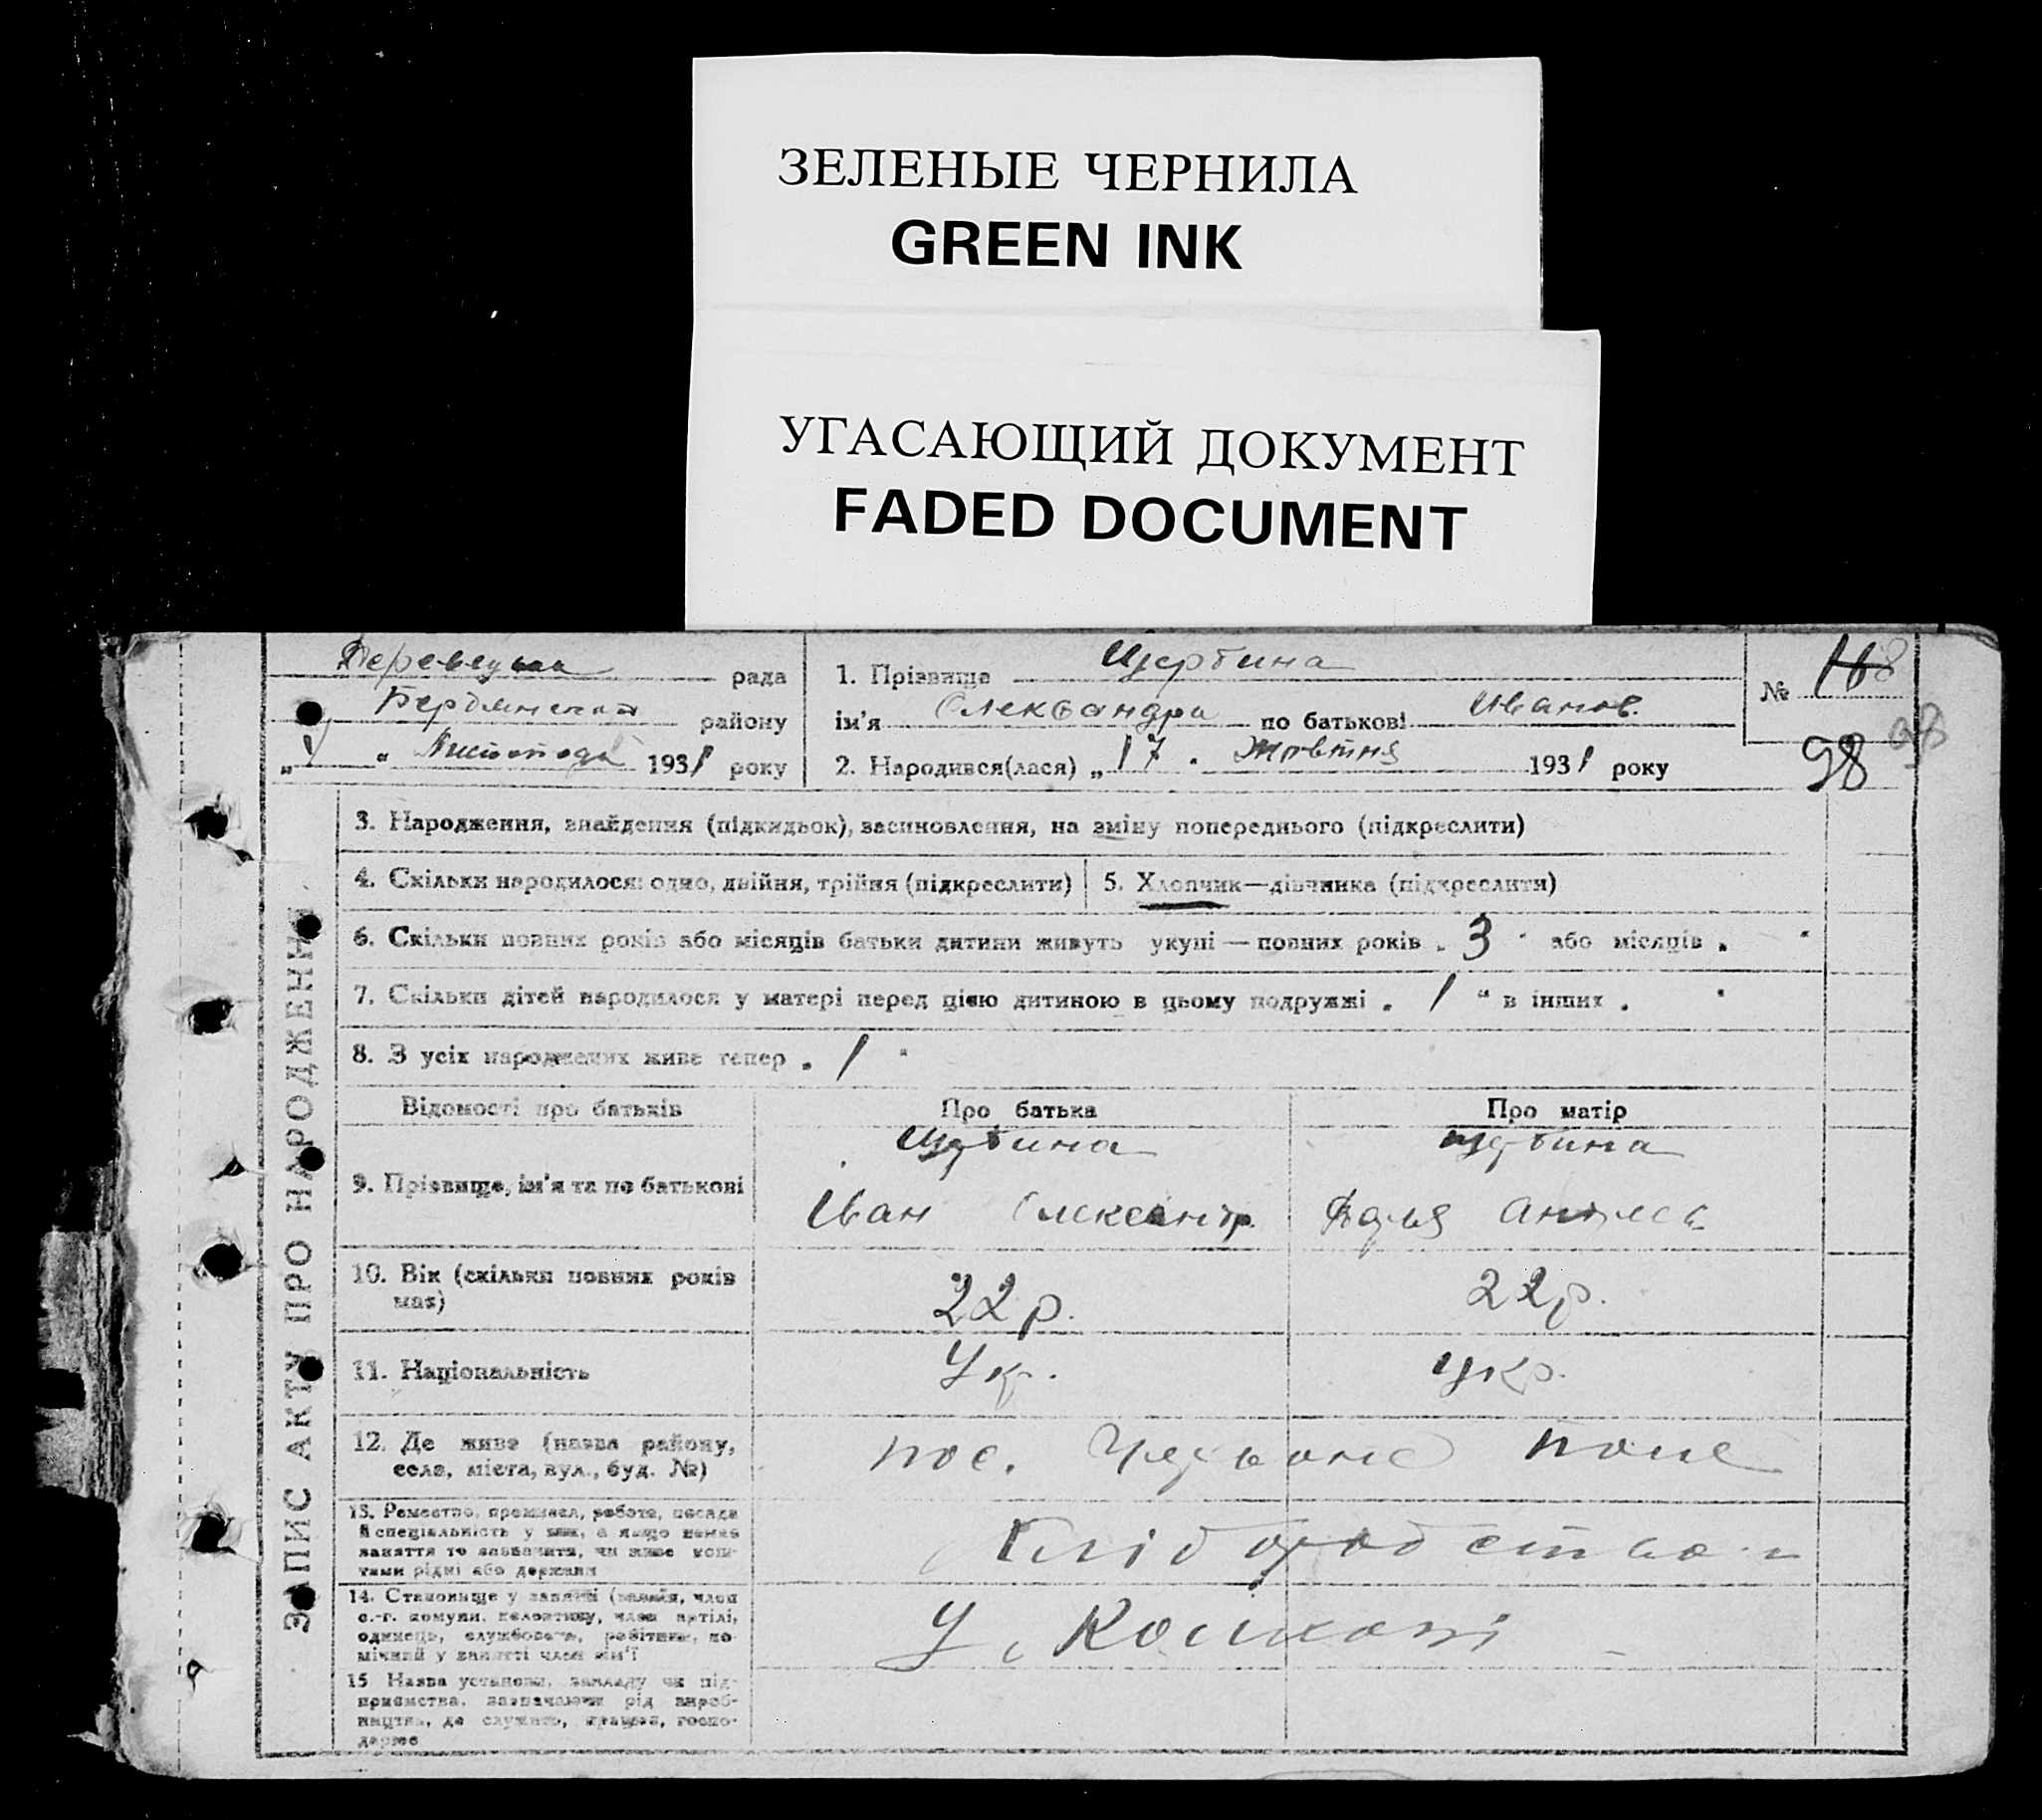 ЗЕЛЕНЫЕ ЧЕРНИЛА
GREEN INK
УГАСАЮЩИЙ ДОКУМЕНТ
FADED DOCUMENT
рада
району
" Листопада 1931 року
1. Прізвище Щербина
ім'я Олександр по батькові Иванов.
2. Народився(лася) „17" Жовтня 1931 року
№
98
98
ЗАПИС АКТУ ПРО НАРОДЖЕННЯ
3. Народження, знайдення (підкидьок), засиновлення, на зміну попереднього (підкреслити)
4. Скільки народилося: одно, двійня, трійня (підкреслити)
5. Хлопчик—дівчинка (підкреслити)
6. Скільки повних років або місяців батьки дитини живуть укупі — повних років „3" або місяців „ "
7. Скільки дітей народилося у матері перед цією дитиною в цьому подружжі „1" в інших „ "
8. З усіх народжених живе тепер „1"
Відомості про батьків
Про батька
Про матір
9. Прізвище, ім'я та по батькові
Щербина
Іван Олександр.
Щербина
10. Вік (скільки повних років має)
22 р.
22 р.
11. Національність
Укр.
Укр.
12. Де живе (назва району, села, міста, вул., буд. №)
пос. Червоне поле
13. Ремество, промисел, робота, посада й спеціальність у них, а якщо немає заняття то зазначити, чи живе коштами рідні або держави
14. Становище у занятті (хазяїн, член с.-г. комуни, колективу, член артілі, одинець, службовець, робітник, помічний у занятті член сім'ї
У
15 Назва установи, закладу чи підприємства, зазначаючи рід виробництва, де служить, працює, господарює